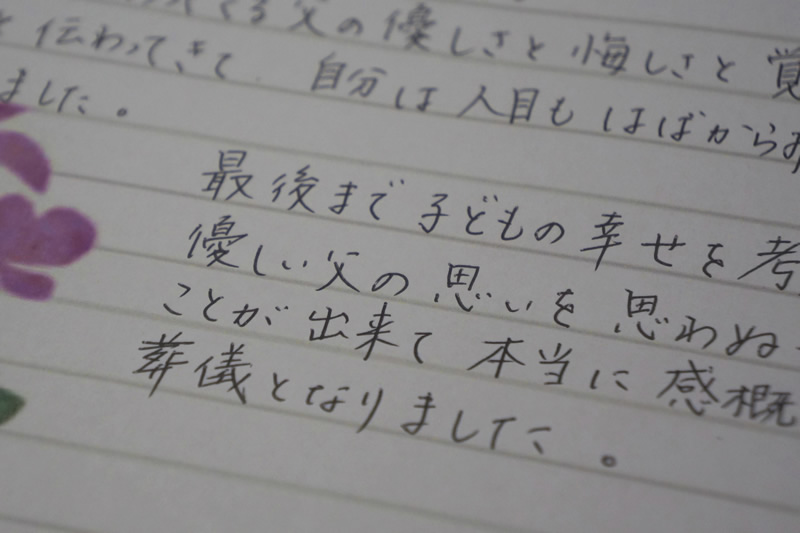 くる父の優しさと悔しさと覚
と伝わってきて自分は人目もはばからず
ました。
最後まで子どもの幸せを考
優しい父の思いを思わぬ
ことが出来て本当に感慨
葬儀となりました。